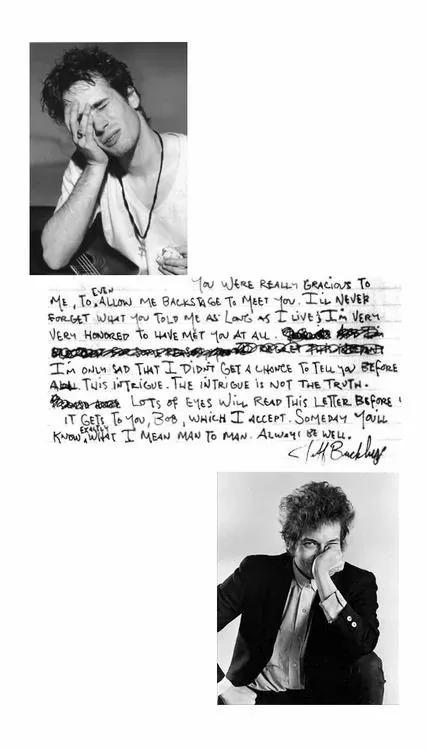 YOU WERE REALLY GRACIOUS TO
EVEN
ME, TO ALLOW ME BACKSTAGE TO MEET YOU. I'LL NEVER
FORGET WHAT YOU TOLD ME AS LONG AS I LIVE & I'M VERY
VERY HONORED TO HAVE MET YOU AT ALL.
I'M ONLY SAD THAT I DIDN'T GET A CHANCE TO TELL YOU BEFORE
ALL THIS INTRIGUE. THE INTRIGUE IS NOT THE TRUTH.
LOTS OF EYES WILL READ THIS LETTER BEFORE
IT GETS TO YOU, BOB, WHICH I ACCEPT. SOMEDAY YOU'LL
EXACTLY
KNOW WHAT I MEAN MAN TO MAN. ALWAYS BE WELL.
Jeff Buckley